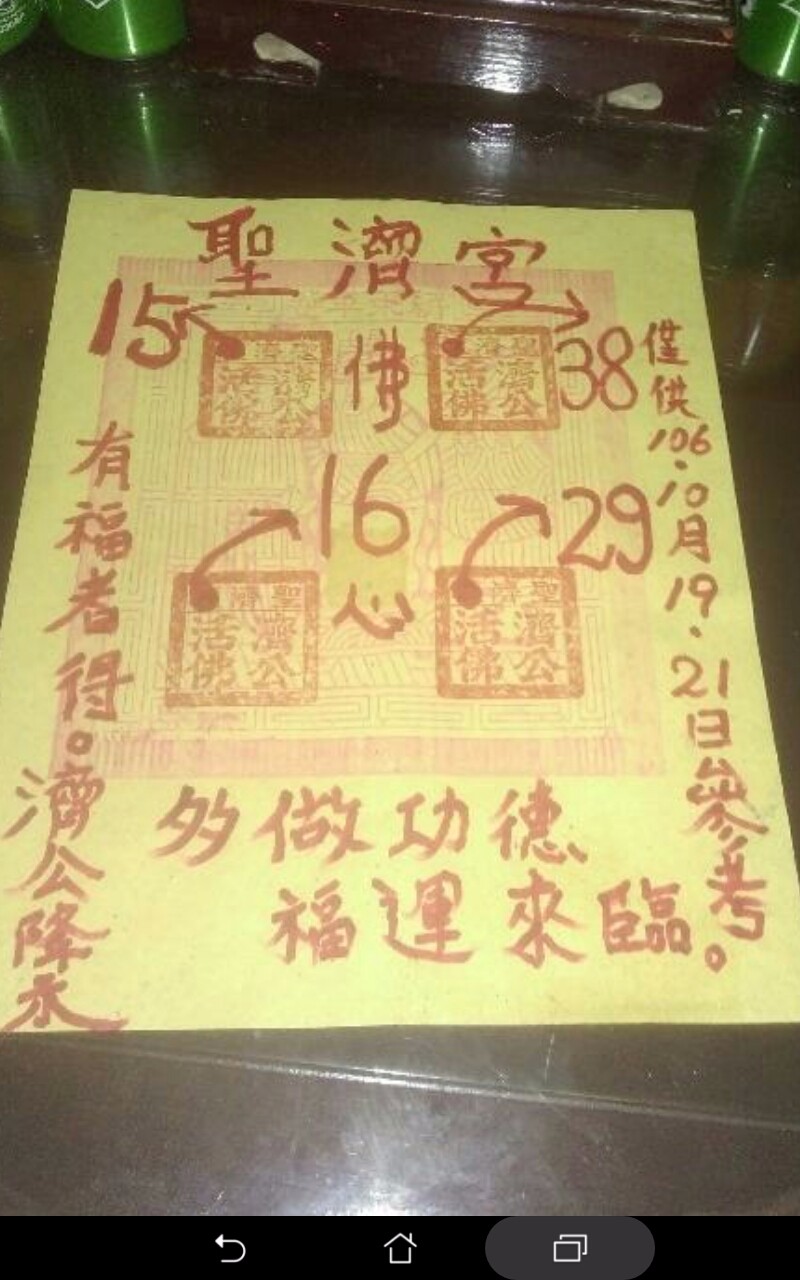 聖濟宮
15 佛 38
16 29
心
僅供106.10月19.21日參考。
有福者得。濟公降示
聖濟
濟公
活佛
聖濟
濟公
活佛
聖濟
濟公
活佛
聖濟
濟公
活佛
多做功德
福運來臨。